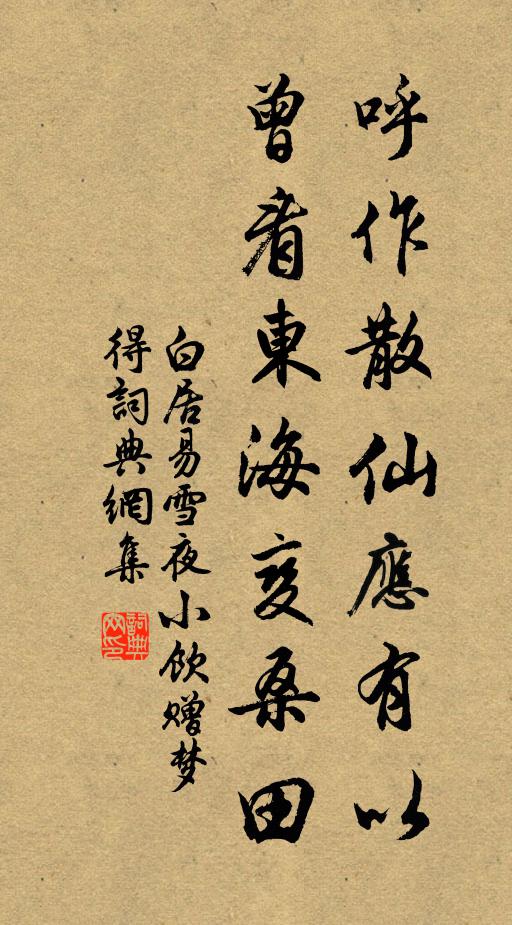 呼作散仙應有以
曾看東海变桑田
白居易雪夜小飲赠梦
得詞典網集
詞典网印